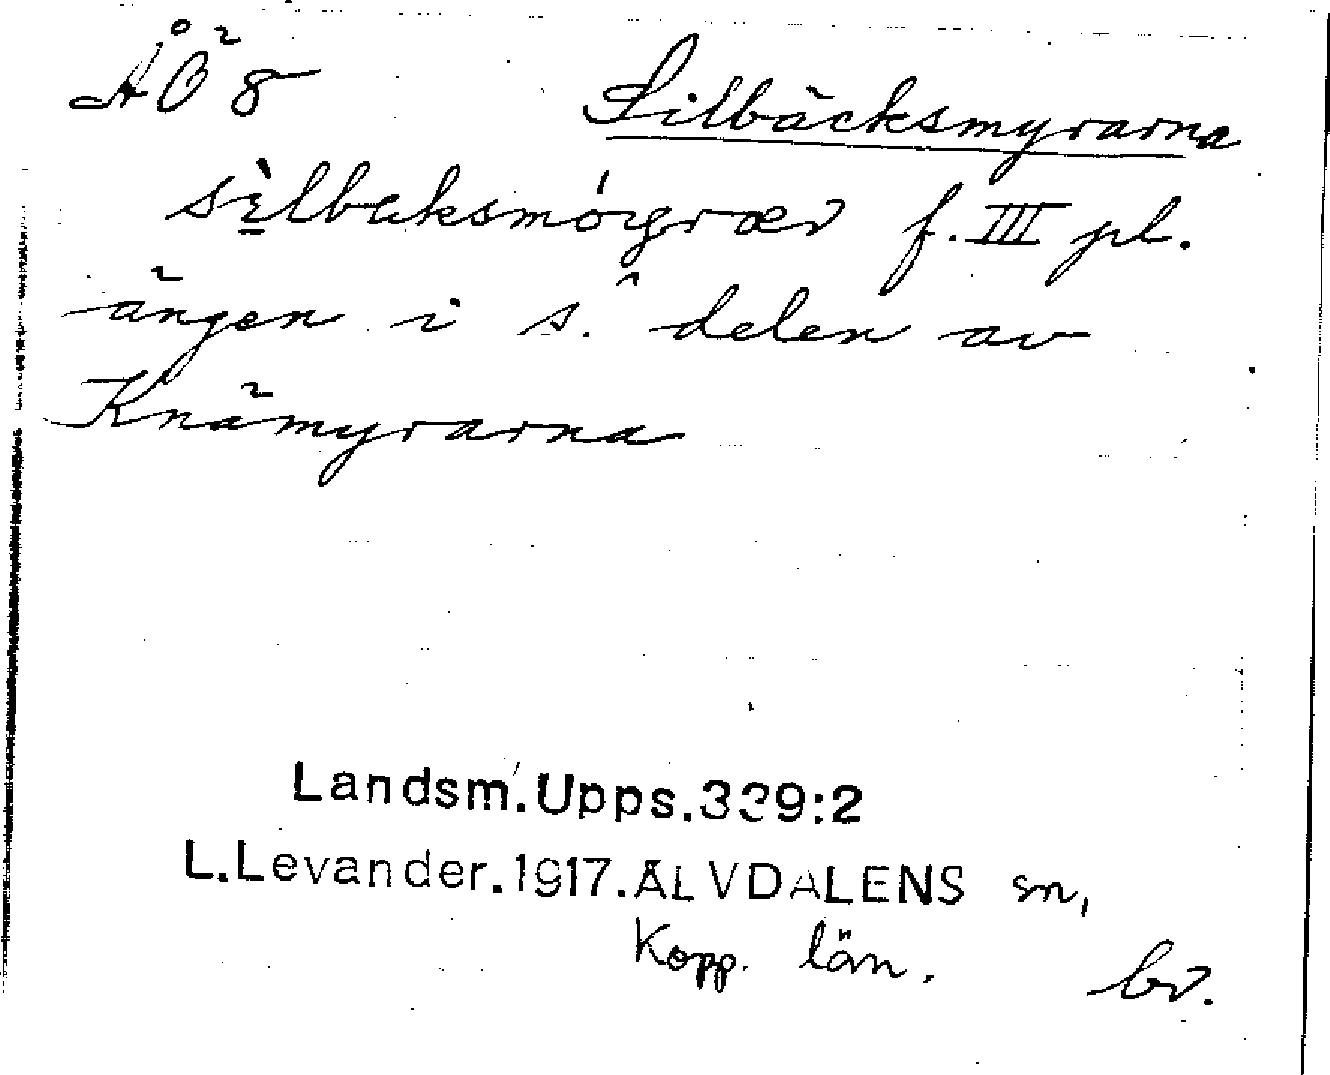 ÅÖ 8 Silbäcksmyrarna
sìlbɐksmóɪgrær f. III pl.
ängen i s. delen av
Knämyrarna
Landsm. Upps. 339:2
L. Levander. 1917. ÄLVDALENS sn,
Kopp. län. br.